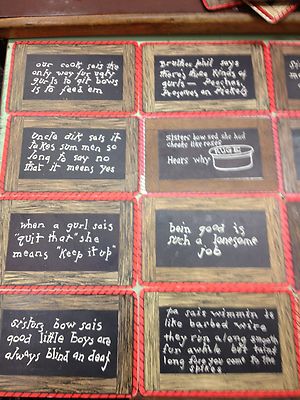 our cook sais the
only way fur ugly
gurls to git bows
is to feed em
Brother phil says
there's three kinds of
gurls — Peaches
an Pickels
Uncle dik sais it
takes sum men so
long to say no
that it means yes
Sisters bow sed she had
cheeks like roses
RUGE
Hears why
when a gurl sais
"quit that" she
means "Keep it up"
bein good is
such a lonesome
job
Sisters bow sais
good little boys are
always blind an deaf
pa sais wimmin is
like barbed wire
they run along smooth
fur awhile but taint
long fore you come to the
spikes